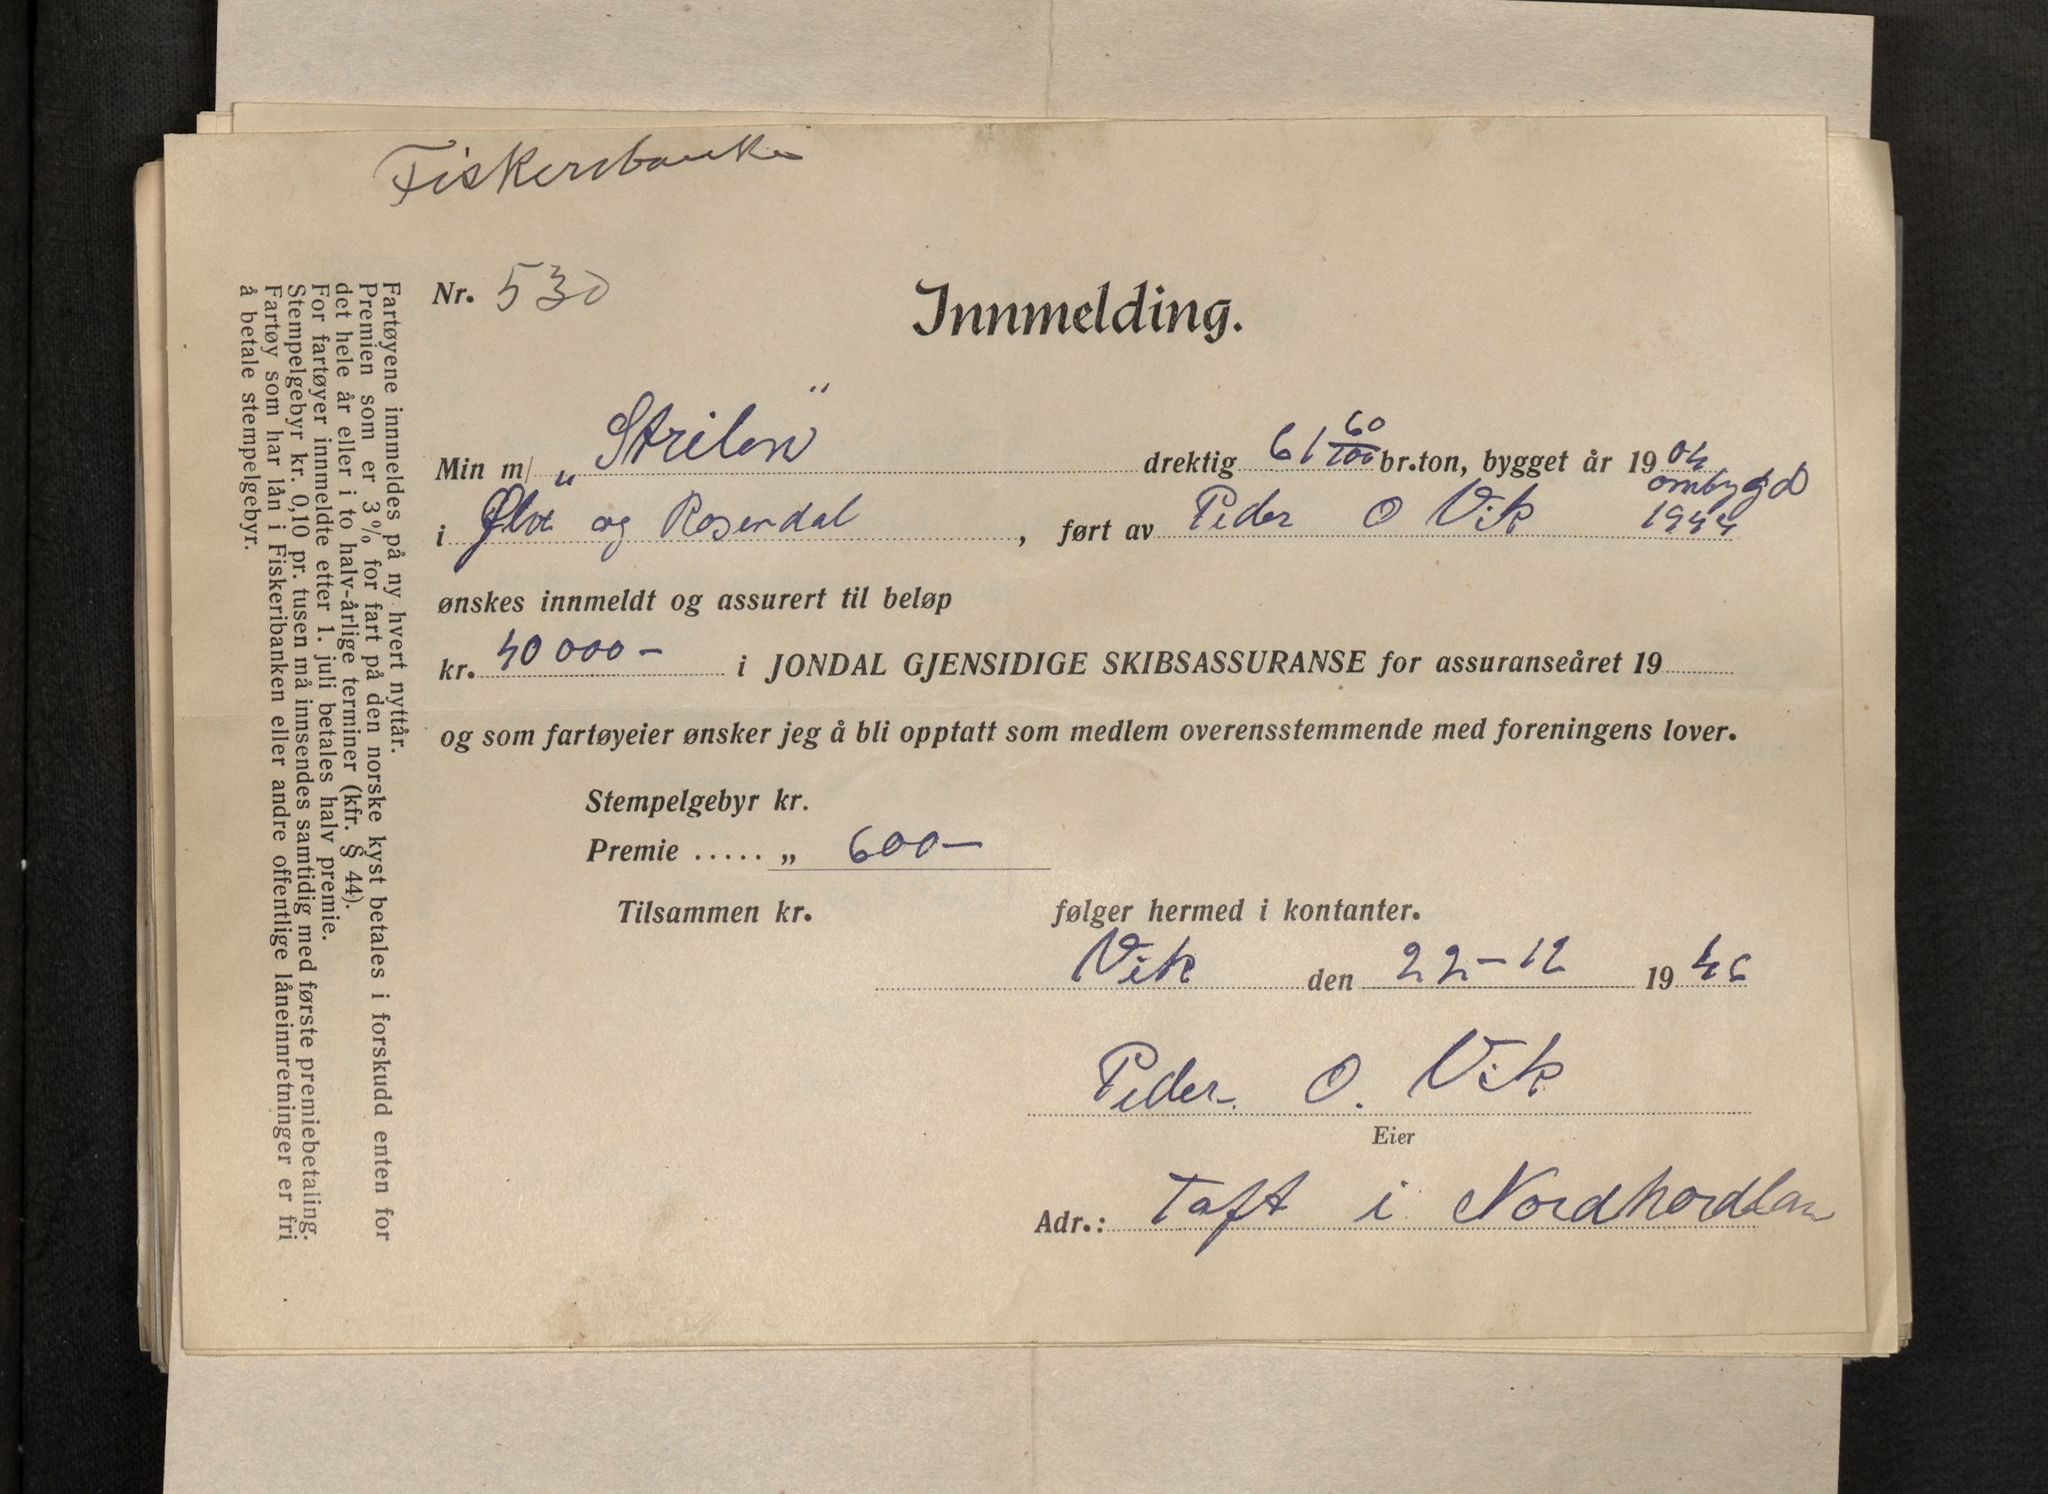 Fiskersbanke
Nr. 530
Innmelding.
Min m/ „Strilen" drektig 61 60/100 br.ton, bygget år 1904
ombygd
i Ølve og Rosendal, ført av Peder O Vik 1944
ønskes innmeldt og assurert til beløp
kr. 40 000 – i JONDAL GJENSIDIGE SKIBSASSURANSE for assuranseåret 19
og som fartøyeier ønsker jeg å bli opptatt som medlem overensstemmende med foreningens lover.
Stempelgebyr kr.
Premie ..... „ 600–
Tilsammen kr. følger hermed i kontanter.
Vik den 22-12 1946
Peder O. Vik
Eier
Adr.: Toft i Nordhordlan
Fartøyene innmeldes på ny hvert nyttår.
Premien som er 3% for fart på den norske kyst betales i forskudd enten for
det hele år eller i to halv-årlige terminer (kfr. § 44).
For fartøyer innmeldte etter 1. juli betales halv premie.
Stempelgebyr kr. 0,10 pr. tusen må innsendes samtidig med første premiebetaling.
Fartøy som har lån i Fiskeribanken eller andre offentlige låneinnretninger er fri
å betale stempelgebyr.